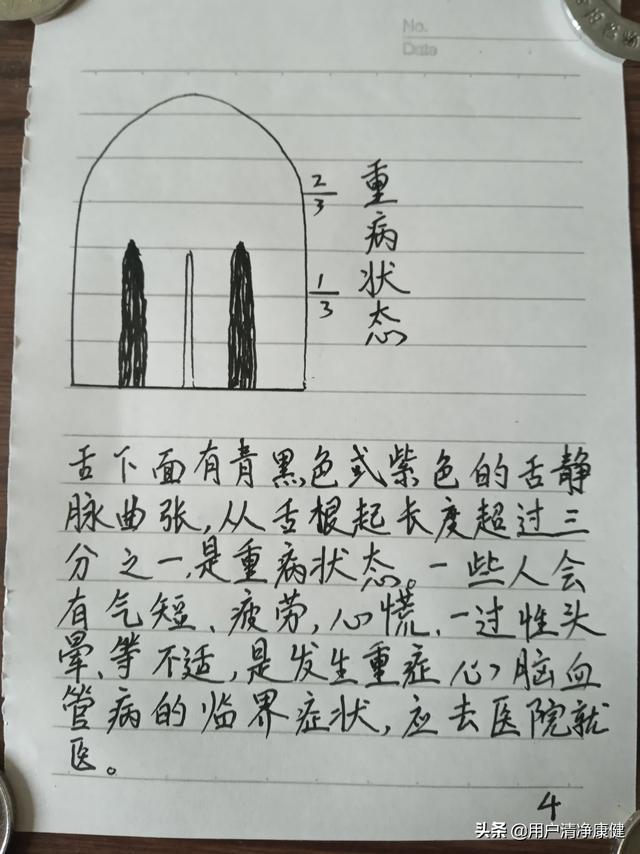 No.
Date
2/3
重病状态
1/3
舌下面有青黑色或紫色的舌静
脉曲张,从舌根起长度超过三
分之一,是重病状态。一些人会
有气短、疲劳,心慌、一过性头
晕、等不适,是发生重症心脑血
管病的临界症状,应去医院就
医。
4
头条 @用户清净康健